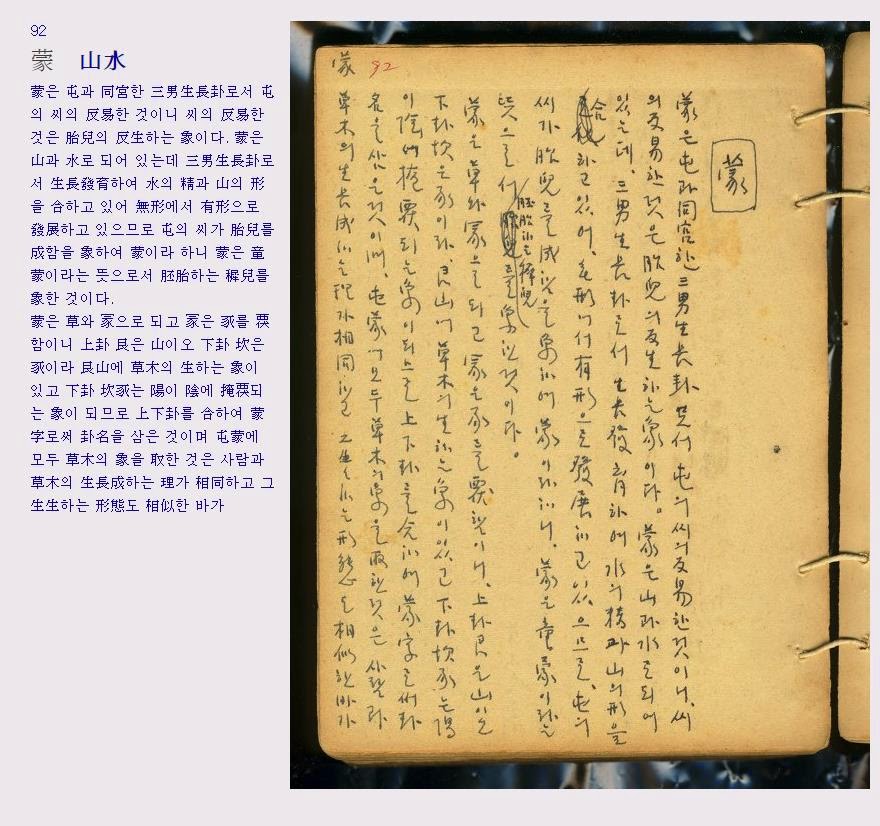 92
蒙 山水
蒙은 屯과 同宮한 三男生長卦로서 屯
의 씨의 反易한 것이니 씨의 反易한
것은 胎兒의 反生하는 象이다. 蒙은
山과 水로 되어 있는데 三男生長卦로
서 生長發育하여 水의 精과 山의 形
을 合하고 있어 無形에서 有形으로
發展하고 있으므로 屯의 씨가 胎兒를
成함을 象하여 蒙이라 하니 蒙은 童
蒙이라는 뜻으로서 胚胎하는 穉兒를
象한 것이다.
蒙은 草와 冡으로 되고 冡은 豕를 覆
함이니 上卦 艮은 山이오 下卦 坎은
豕이라 艮山에 草木의 生하는 象이
있고 下卦 坎豕는 陽이 陰에 掩覆되
는 象이 되므로 上下卦를 合하여 蒙
字로써 卦名을 삼은 것이며 屯蒙에
모두 草木의 象을 取한 것은 사람과
草木의 生長成하는 理가 相同하고 그
生生하는 形態도 相似한 바가
蒙 92
蒙
蒙은 屯과 同宮한 三男生長卦로서 屯의 씨의 反易한 것이니, 씨
의 反易한 것은 胎兒의 反生하는 象이다. 蒙은 山과 水로 되어
있는데, 三男生長卦로서 生長發育하여 水의 精과 山의 形을
合하고 있어, 無形에서 有形으로 發展하고 있으므로, 屯의
씨가 胎兒를 成함을 象하여 蒙이라 하니, 蒙은 童蒙이라는
뜻으로서 胚胎하는 穉兒를 象한 것이다.
蒙은 草와 冡으로 되고 冡은 豕를 覆함이니, 上卦 艮은 山이오
下卦 坎은 豕이라, 艮山에 草木의 生하는 象이 있고 下卦 坎豕는 陽
이 陰에 掩覆되는 象이 되므로 上下卦를 合하여 蒙字로써 卦
名을 삼은 것이며, 屯蒙에 모두 草木의 象을 取한 것은 사람과
草木의 生長成하는 理가 相同하고 그 生生하는 形態도 相似한 바가